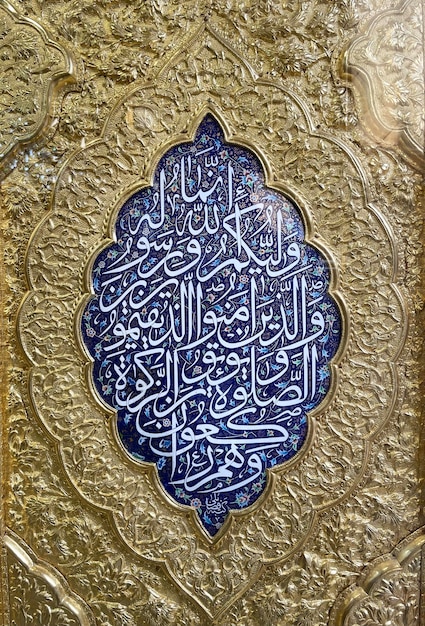 إنما
وليكم الله ورسوله
والذين آمنوا الذين يقيمون
الصلوة ويؤتون الزكوة
وهم راكعون